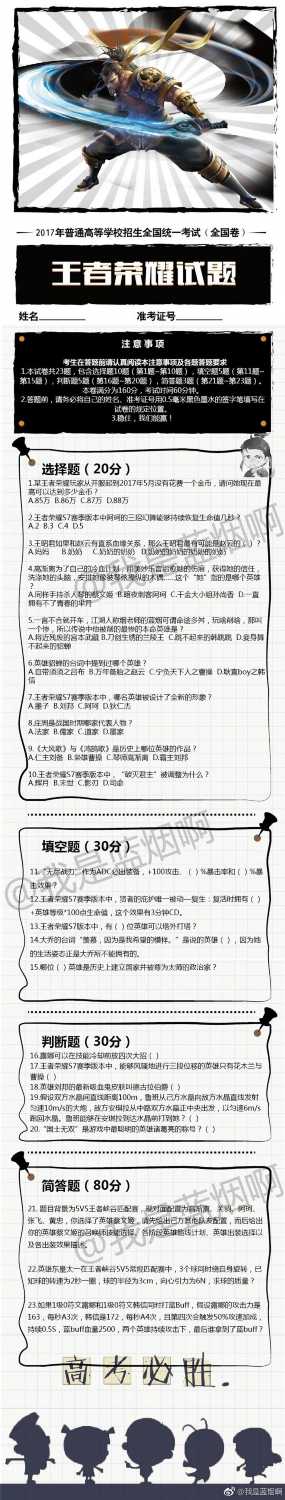 2017年普通高等学校招生全国统一考试（全国卷）
王者荣耀试题
姓名 准考证号
注意事项
考生在答题前请认真阅读本注意事项及各题答题要求
1.本试卷共23题，包含选择题10题（第1题~第10题），填空题5题（第11题~
第15题），判断题5题（第16题~第20题），简答题3题（第21题~第23题）。
本卷满分为160分，考试时间60分钟。
2.答题前，请务必将自己的姓名、准考证号用0.5毫米黑色墨水的签字笔填写在
试卷的规定位置。
3.稳住，我们能赢！
选择题（20分）
1.某王者荣耀玩家从开服起到2017年5月没有花费一个金币，请问她现在最
高可以达到多少金币？
A.85万 B.86万 C.87万 D.88万
2.王者荣耀S7赛季版本中阿珂的三招幻舞能够持续恢复生命值几秒？
A.2 B.3 C.4 D.5
3.王昭君如果和赵云有直系血缘关系，那么王昭君最有可能是赵云的（ ）？
A.妈妈 B.奶奶 C.奶奶的奶奶 D.奶奶的奶奶的奶奶的奶奶
4.高渐离为了自己的
洗涤她的头脑，
？
A.同样手持杀人琴的蔡文姬 B.暗夜刺客阿珂 C.千金大小姐孙尚香 D.一直
拥有不了青春的芈月
5.一言不合就开车，江湖人称烟老师的蓝烟可谓命途多舛，玩啥削啥，那叫
一个惨，所以传说中他被削的最惨的本命英雄是？
A.将近残废的宫本武藏 B.刀剑生锈的兰陵王 C.跳不起来的韩跳跳 D.变身臃
不起来的貂蝉
6.英雄貂蝉的台词中提到过哪个英雄？
A.自带须须之吕布 B.万年备胎之赵云 C.宁负天下人之曹操 D.耿直boy之韩
信
7.王者荣耀S7赛季版本中，哪名英雄被设计了全新的形象？
A.墨子 B.刘邦 C.阿珂 D.狄仁杰
8.庄周是战国时期哪家代表人物？
A.法家 B.儒家 C.道家 D.墨家
9.《大风歌》与《鸿鹄歌》是历史上哪位英雄的作品？
A.仁主刘备 B.枭雄曹操 C.琴师高渐离 D.霸主刘邦
10.王者荣耀S7赛季版本中，“破灭君主”被调整为什么？
A.辉月 B.末世 C.影刃 D.司命
填空题（30分）
11.“无尽战刃”作为ADC必出装备，+100攻击，（ ）%暴击率和（ ）%暴
击效果？
12.王者荣耀S7赛季版本中，贤者的庇护唯一被动—复生：复活时拥有（ ）
+英雄等级*100点生命值，这个效果有3分钟CD。
13.王者荣耀S7版本中，有（ ）位英雄可以塔外打塔？
14.大乔的台词“羡慕，因为是我希望的模样。”是说的英雄（ ），因为她
的生活姿态正是大乔所不能拥有的。
15.哪位（ ）英雄是历史上建立国家并被尊为太师的政治家？
判断题（30分）
16.露娜可以在技能冷却前放四次大招（ ）
17.王者荣耀S7赛季版本中，能够风骚地进行三段位移的英雄只有花木兰与
曹操（ ）
18.英雄刘邦的最新吸血鬼皮肤叫德古拉伯爵（ ）
19.假设双方水晶间直线距离100m，鲁班从己方水晶向敌方水晶直线发射
匀速10m/s的大炮，敌方安琪拉从中路双方水晶正中央出发，以匀速6m/s
跑回水晶。鲁班能够在安琪拉到达水晶前打到她？（ ）
20.“国士无双”是游戏中最聪明的英雄诸葛亮的称号？（ ）
简答题（80分）
21. 题目背景为5V5王者峡谷匹配赛，
张飞、黄忠，你选择了英雄蔡文姬，请先给出己方其他队友配置，而后给出
你的英雄蔡文姬的召唤师技能选择、各阶段英雄路线计划、英雄出装选择以
及各出装效果描述。
22.英雄东皇太一在王者峡谷5V5常规匹配赛中，3个球同时绕自身旋转，已
知球的转速为2秒一圈，球的半径为3cm，向心引力为6N，求球的质量？
23.如果1级0符文露娜和1级0符文韩信同时打蓝Buff，假设露娜的攻击力是
163，每秒A3次，韩信是172，每秒A4次，且第四次会触发50%攻速加成，
持续0.5S，蓝buff血量2500，两个英雄持续攻击下，最后谁拿到了蓝buff？
高考必胜.
@我是蓝烟啊
@我是蓝烟啊
@我是蓝烟啊
@我是蓝烟啊